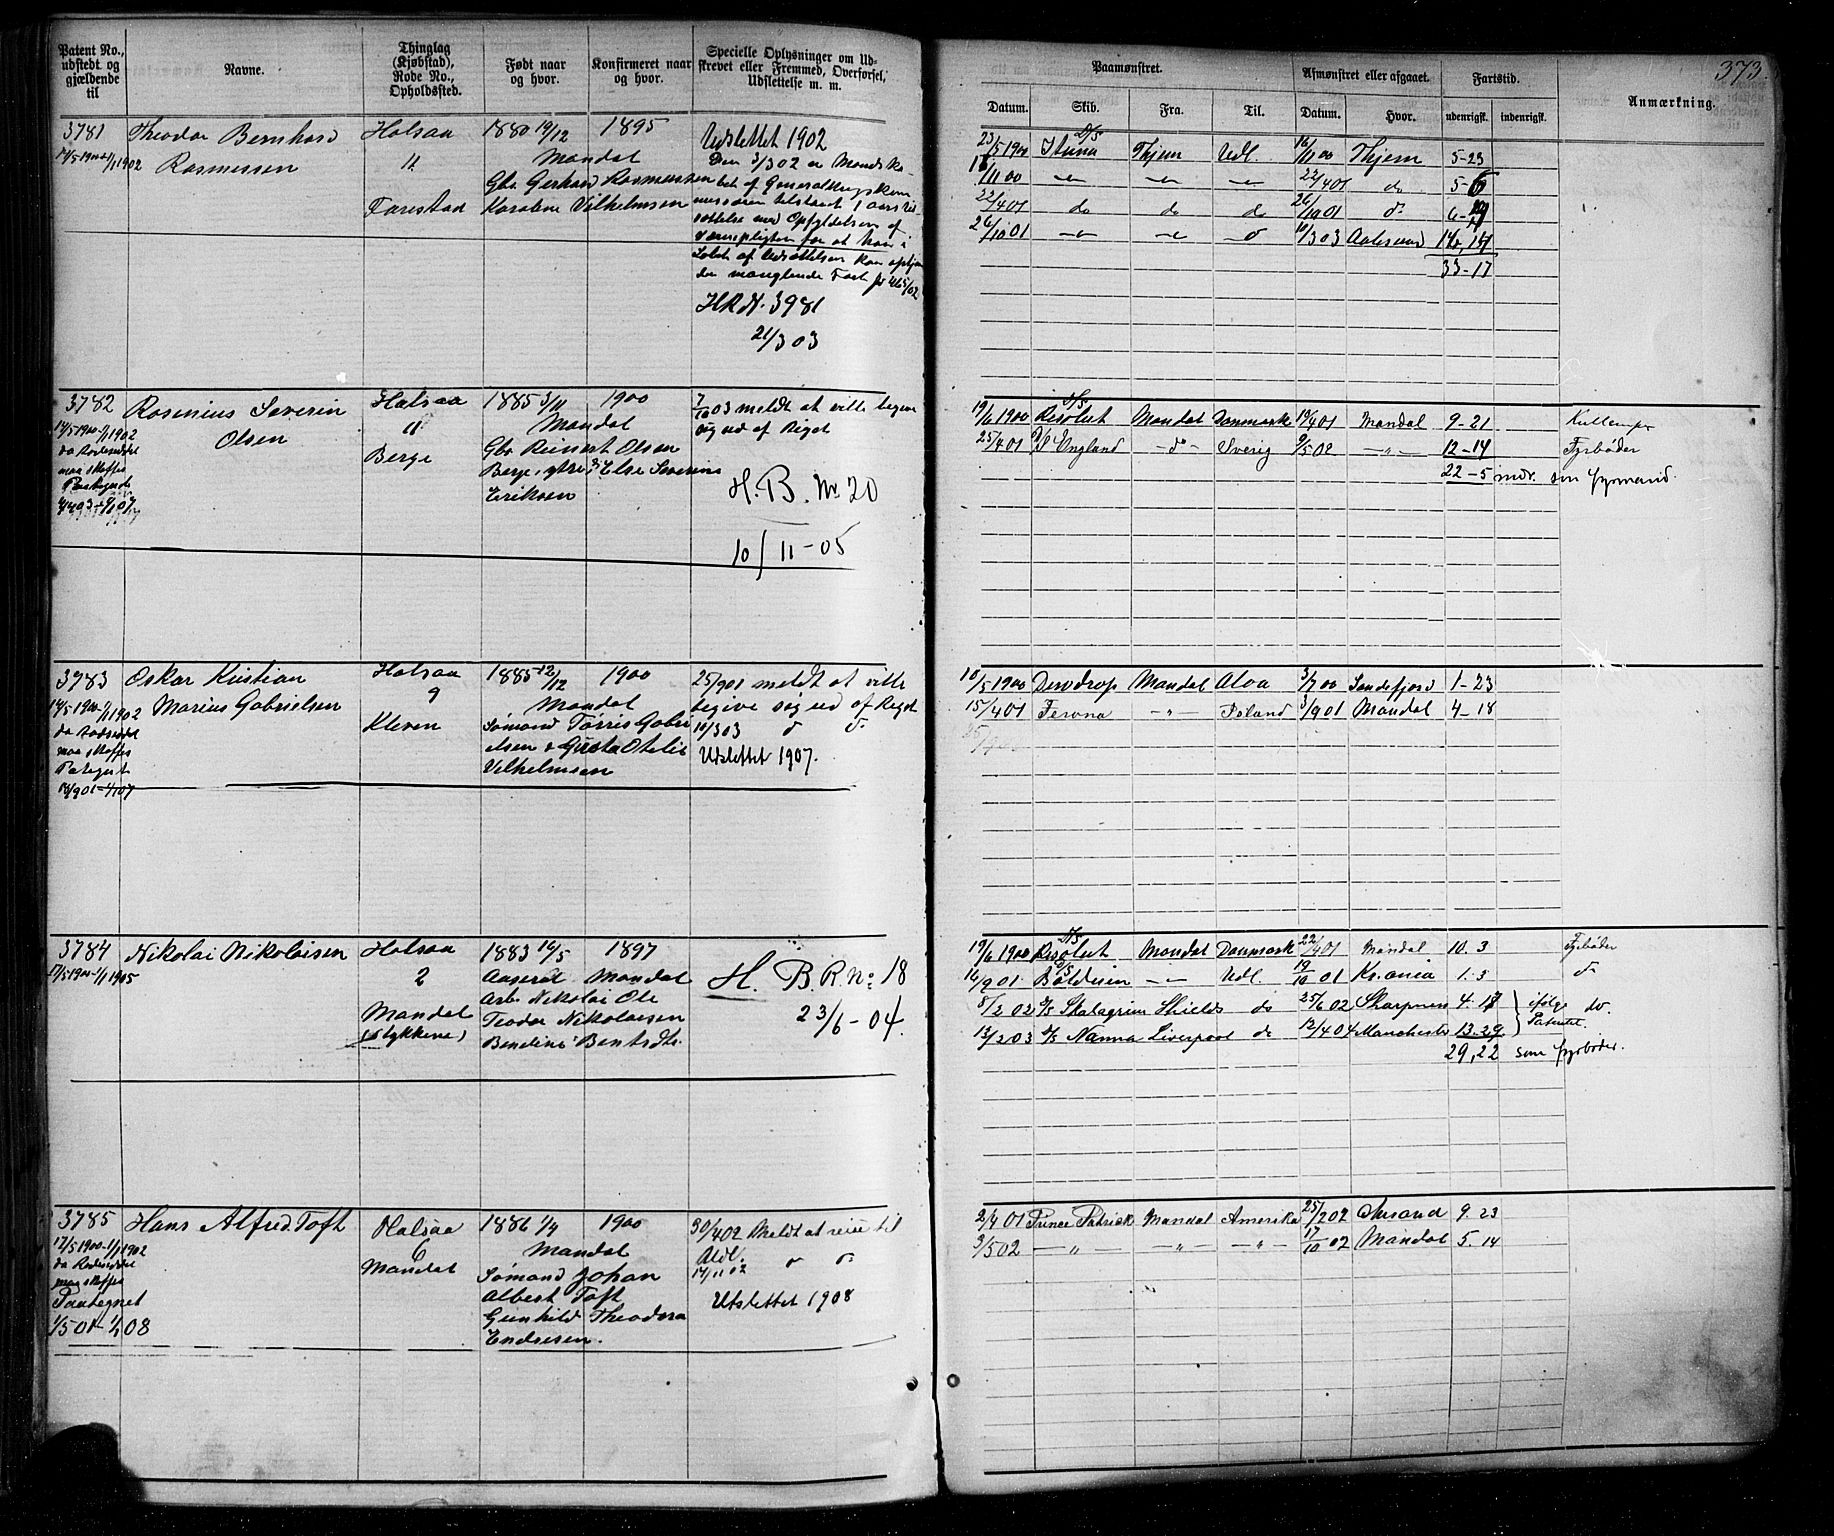 373.
Patent No., udstedt og gjældende til
Navne.
Thinglag (Kjøbstad), Rode No., Opholdssted.
Født naar og hvor.
Konfirmeret naar og hvor.
Specielle Oplysninger om Udskrevet eller Fremmed, Overførsel, Udslettelse m. m.
Paamønstret.
Afmønstret eller afgaaet.
Fartstid.
Anmærkning.
Datum.
Skib.
Fra.
Til.
Datum.
Hvor.
udenrigsk.
indenrigsk.
3781
Theodor Bernhard
Rasmussen
Halsaa
11
Farestad
1880 19/12
1895
Mandal
Gbr. Gerhard Rasmussen
Karoline Vilhelmsen
Udslettet 1902
Den 3/3 02 er Mandska-
bet af Generalkrigskom
missæren tilstaaet 1 aars ud
sættelse med Opfyldelsen af
Værnepligten for at han i
Løbet af Udsættelsen kan optjene
den manglende Fart
H R N. 3981
21/3 03
23/5 1900 D/S Ituna Thjem Udl. 16/11 00 Thjem 5-23
16/11 00 22/4 01 do
22/4 01 do do do 26/10 01 do
26/10 01 10/3 03 Aalesund
33-17
3782
Rosenius Severin
Olsen
14/5 1900-1/1 1902
Halsaa
11
Berge
1885 3/11
1900
Mandal
Gbr Reinert Olsen
Berge, Else Severine
Eriksen
7/10 03 meldt at ville begive
sig ud af Riget
H. B. No 20
10/11-05
19/6 1900 D/S Resolut Mandal Danmark 19/4 01 Mandal 9-21
25/4 01 D/S England -do- Sverig 9/5 02 -"- 12-14 Fyrbøder
22-5 mdr. som fyrmand.
3783
Oskar Kristian
Marius Gabrielsen
14/5 1900-1/1 1902
Halsaa
9
Kleven
1885 12/12
1900
Mandal
Sømand Tørris Gabri
elsen & Gusta Otelie
Vilhelmsen
25/9 01 meldt at ville
begive sig ud af Riget
10/3 03 do do
Udslettet 1907.
18/5 1900 Dewdrop Mandal Aloa 3/7 00 Sandefjord 1-23
15/4 01 Ferona -"- Island 3/9 01 Mandal 4-18
3784
Nikolai Nikolaisen
17/5 1900-1/1 1905
Halsaa
2
Mandal
1883 16/5
1897
Aaseral Mandal
Arb. Nikolai Ole
Teodor Nikolaisen
Bendine Bentsdtr.
H. B R. No: 18
23/6-04.
19/6 1900 D/S Resolut Mandal Danmark 22/4 01 Mandal 10. 3 Fyrbøder
16/9 01 D/S Balduin -"- Udl. 19/10 01 Kr.ania 1. 5 do
8/2 02 D/S Skalagrim Shields do 25/6 02 Sharpness 4. 17 ifølge do.
13/2 03 D/S Nanna Liverpool do 12/4 04 Manchester 13. 29 Patentet.
29, 22 som fyrbøder.
3785
Hans Alfred Toft
17/5 1900-1/1 1902
da Rodesedel
maa skaffes
Paategnet
1/5 01-1/1 08
Halsaa
6
Mandal
1886 1/4
1900
Mandal
Sømand Johan
Albert Toft
Gunhild Theodora
Endresen.
30/4 02 Meldt at reise til
Udl.
14/11 02 do do
Utslettet 1908
2/4 01 Prince Patrick Mandal Amerika 25/2 02 Arsand 9. 23
9/5 02 -"- -"- -"- 17/10 02 Mandal 5. 14